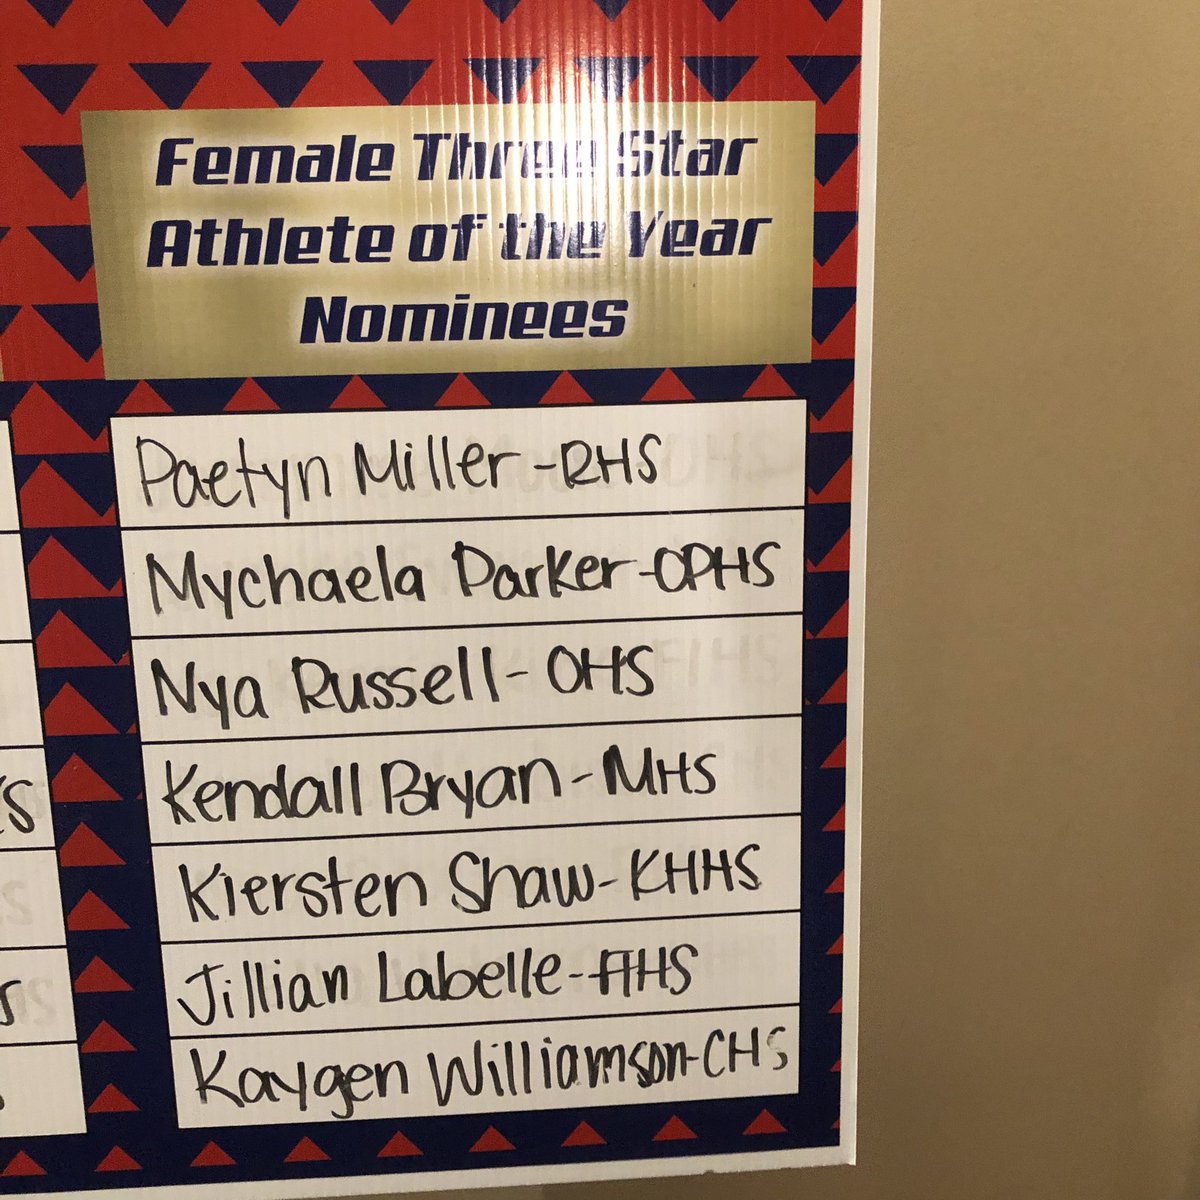 Female Three Star
Athlete of the Year
Nominees
Paetyn Miller-RHS
Mychaela Parker-OPHS
Nya Russell-OHS
Kendall Bryan-MHS
Kiersten Shaw-KHHS
Jillian Labelle-FIHS
Kaygen Williamson-CHS